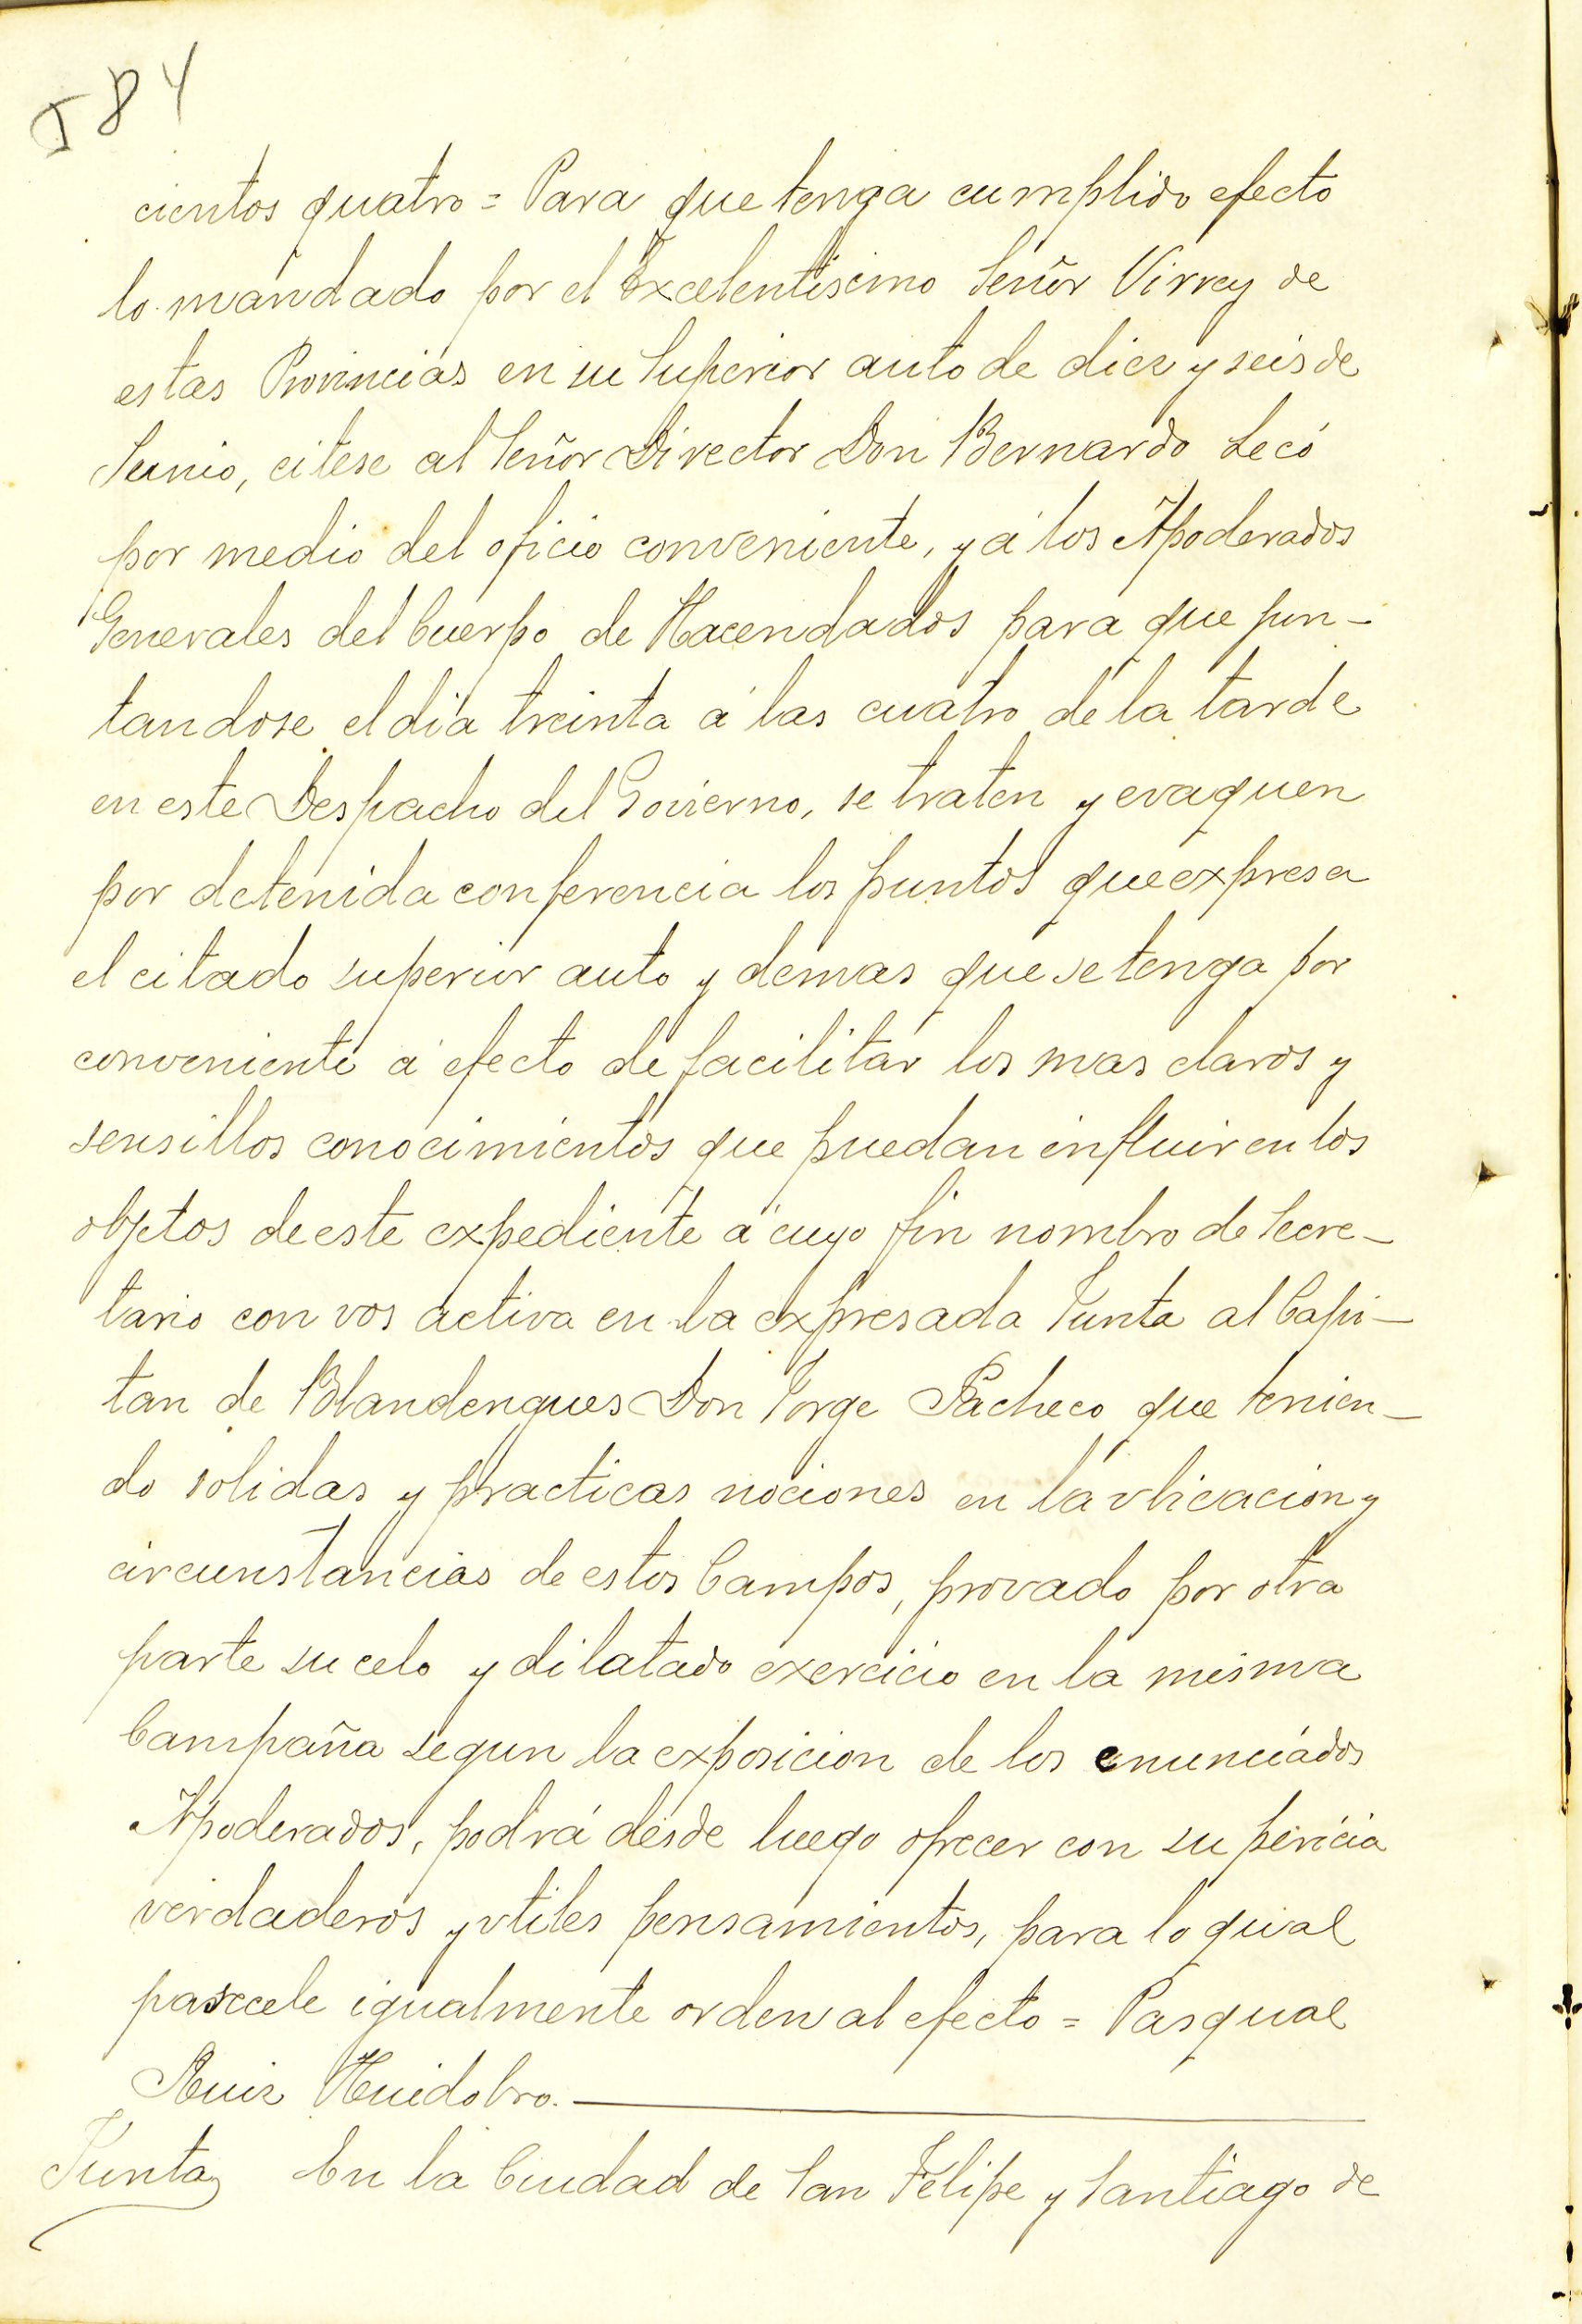 584
cientos quatro = Para que tenga cumplido efecto
lo mandado por el Excelentisimo Señor Virrey de
estas Provincias en su Superior auto de diez y seis de
Junio, citese al Señor Director Don Bernardo Lecó
por medio del oficio conveniente, y á los Apoderados
Generales del Cuerpo de Hacendados para que jun-
tandose el dia treinta á las cuatro de la tarde
en este Despacho del Govierno, se traten y evaquen
por detenida conferencia los puntos que expresa
el citado superior auto y demas que se tenga por
conveniente á efecto de facilitar los mas claros y
sensillos conocimientos que puedan influir en los
objetos de este expediente á cuyo fin nombro de Secre-
tario con vos activa en la expresada Junta al Capi-
tan de Blandengues Don Jorge Pacheco que tenien-
do solidas y practicas nociones en la vbicacion y
circunstancias de estos Campos, provado por otra
parte su celo y dilatado exercicio en la misma
Campaña segun la exposicion de los enunciados
Apoderados, podrá desde luego ofrecer con su pericia
verdaderos y vtiles pensamientos, para lo qual
pasecele igualmente orden al efecto = Pasqual
Ruiz Huidobro.
Junta En la Ciudad de San Felipe y Santiago de